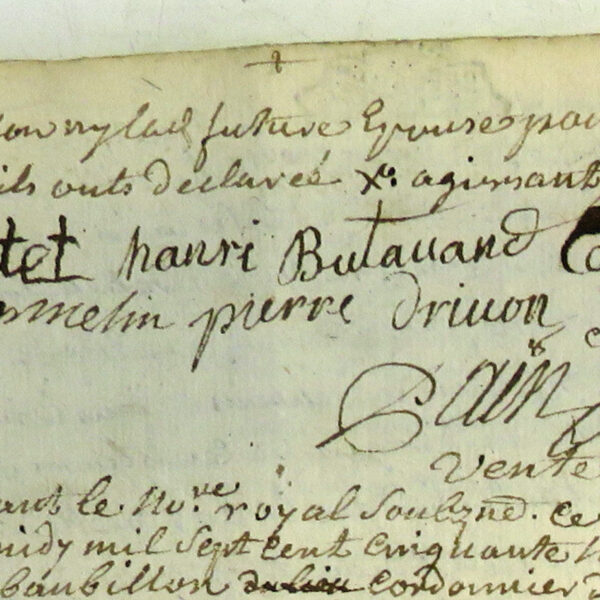 future Epouse pou
ils onts declareé X. agissant
tet hanri Butauand
melin pierre drivon
Sain
vente
ant le no.re royal soubzné. ce
midy mil sept cent cinquante
baubillon du lieu cordonnier